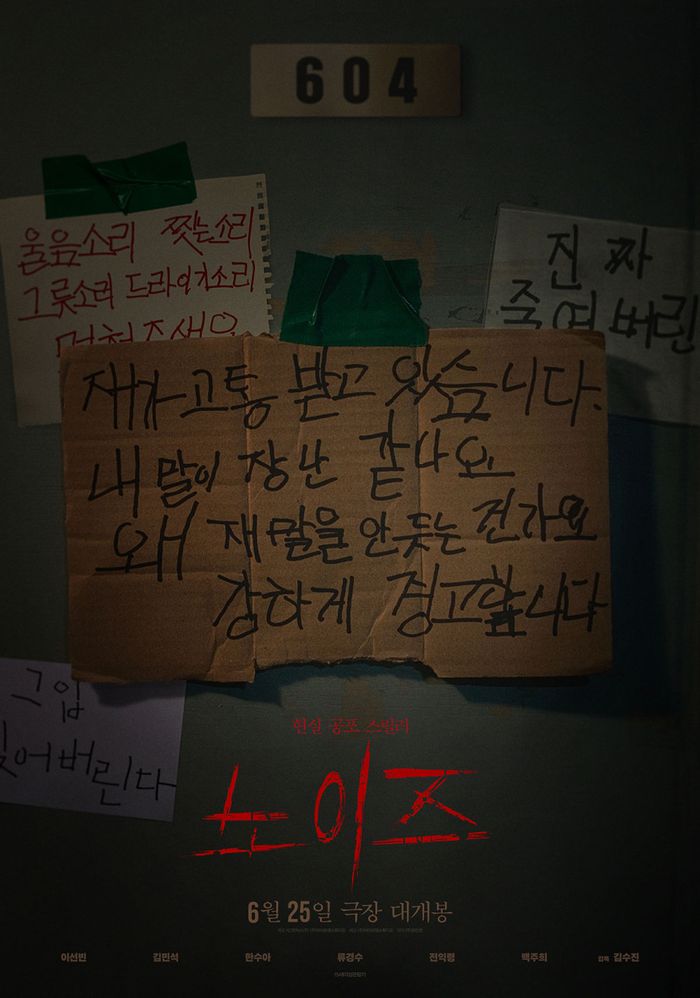 604
울음소리 찢는소리
그릇소리 드라이기소리
멈춰주세요
진짜
죽여버린
재가 고통 받고 있습니다.
내 말이 장난 같나요
왜 재 말을 안 듣는 건가요
강하게 경고합니다
그입
찢어버린다
현실 공포 스릴러
노이즈
6월 25일 극장 대개봉
이선빈 김민석 한수아 류경수 전익령 백주희 감독 김수진